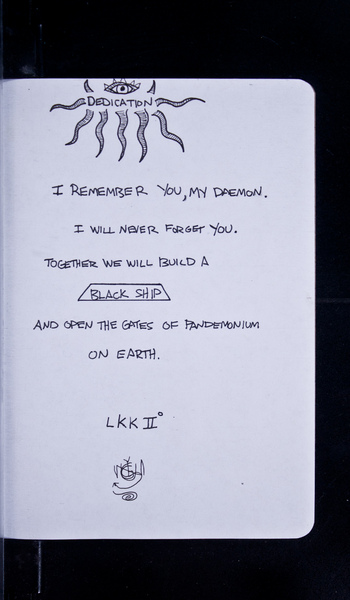 DEDICATION
I REMEMBER YOU, MY DAEMON.
I WILL NEVER FORGET YOU.
TOGETHER WE WILL BUILD A
BLACK SHIP
AND OPEN THE GATES OF PANDEMONIUM
ON EARTH.
LKK II°